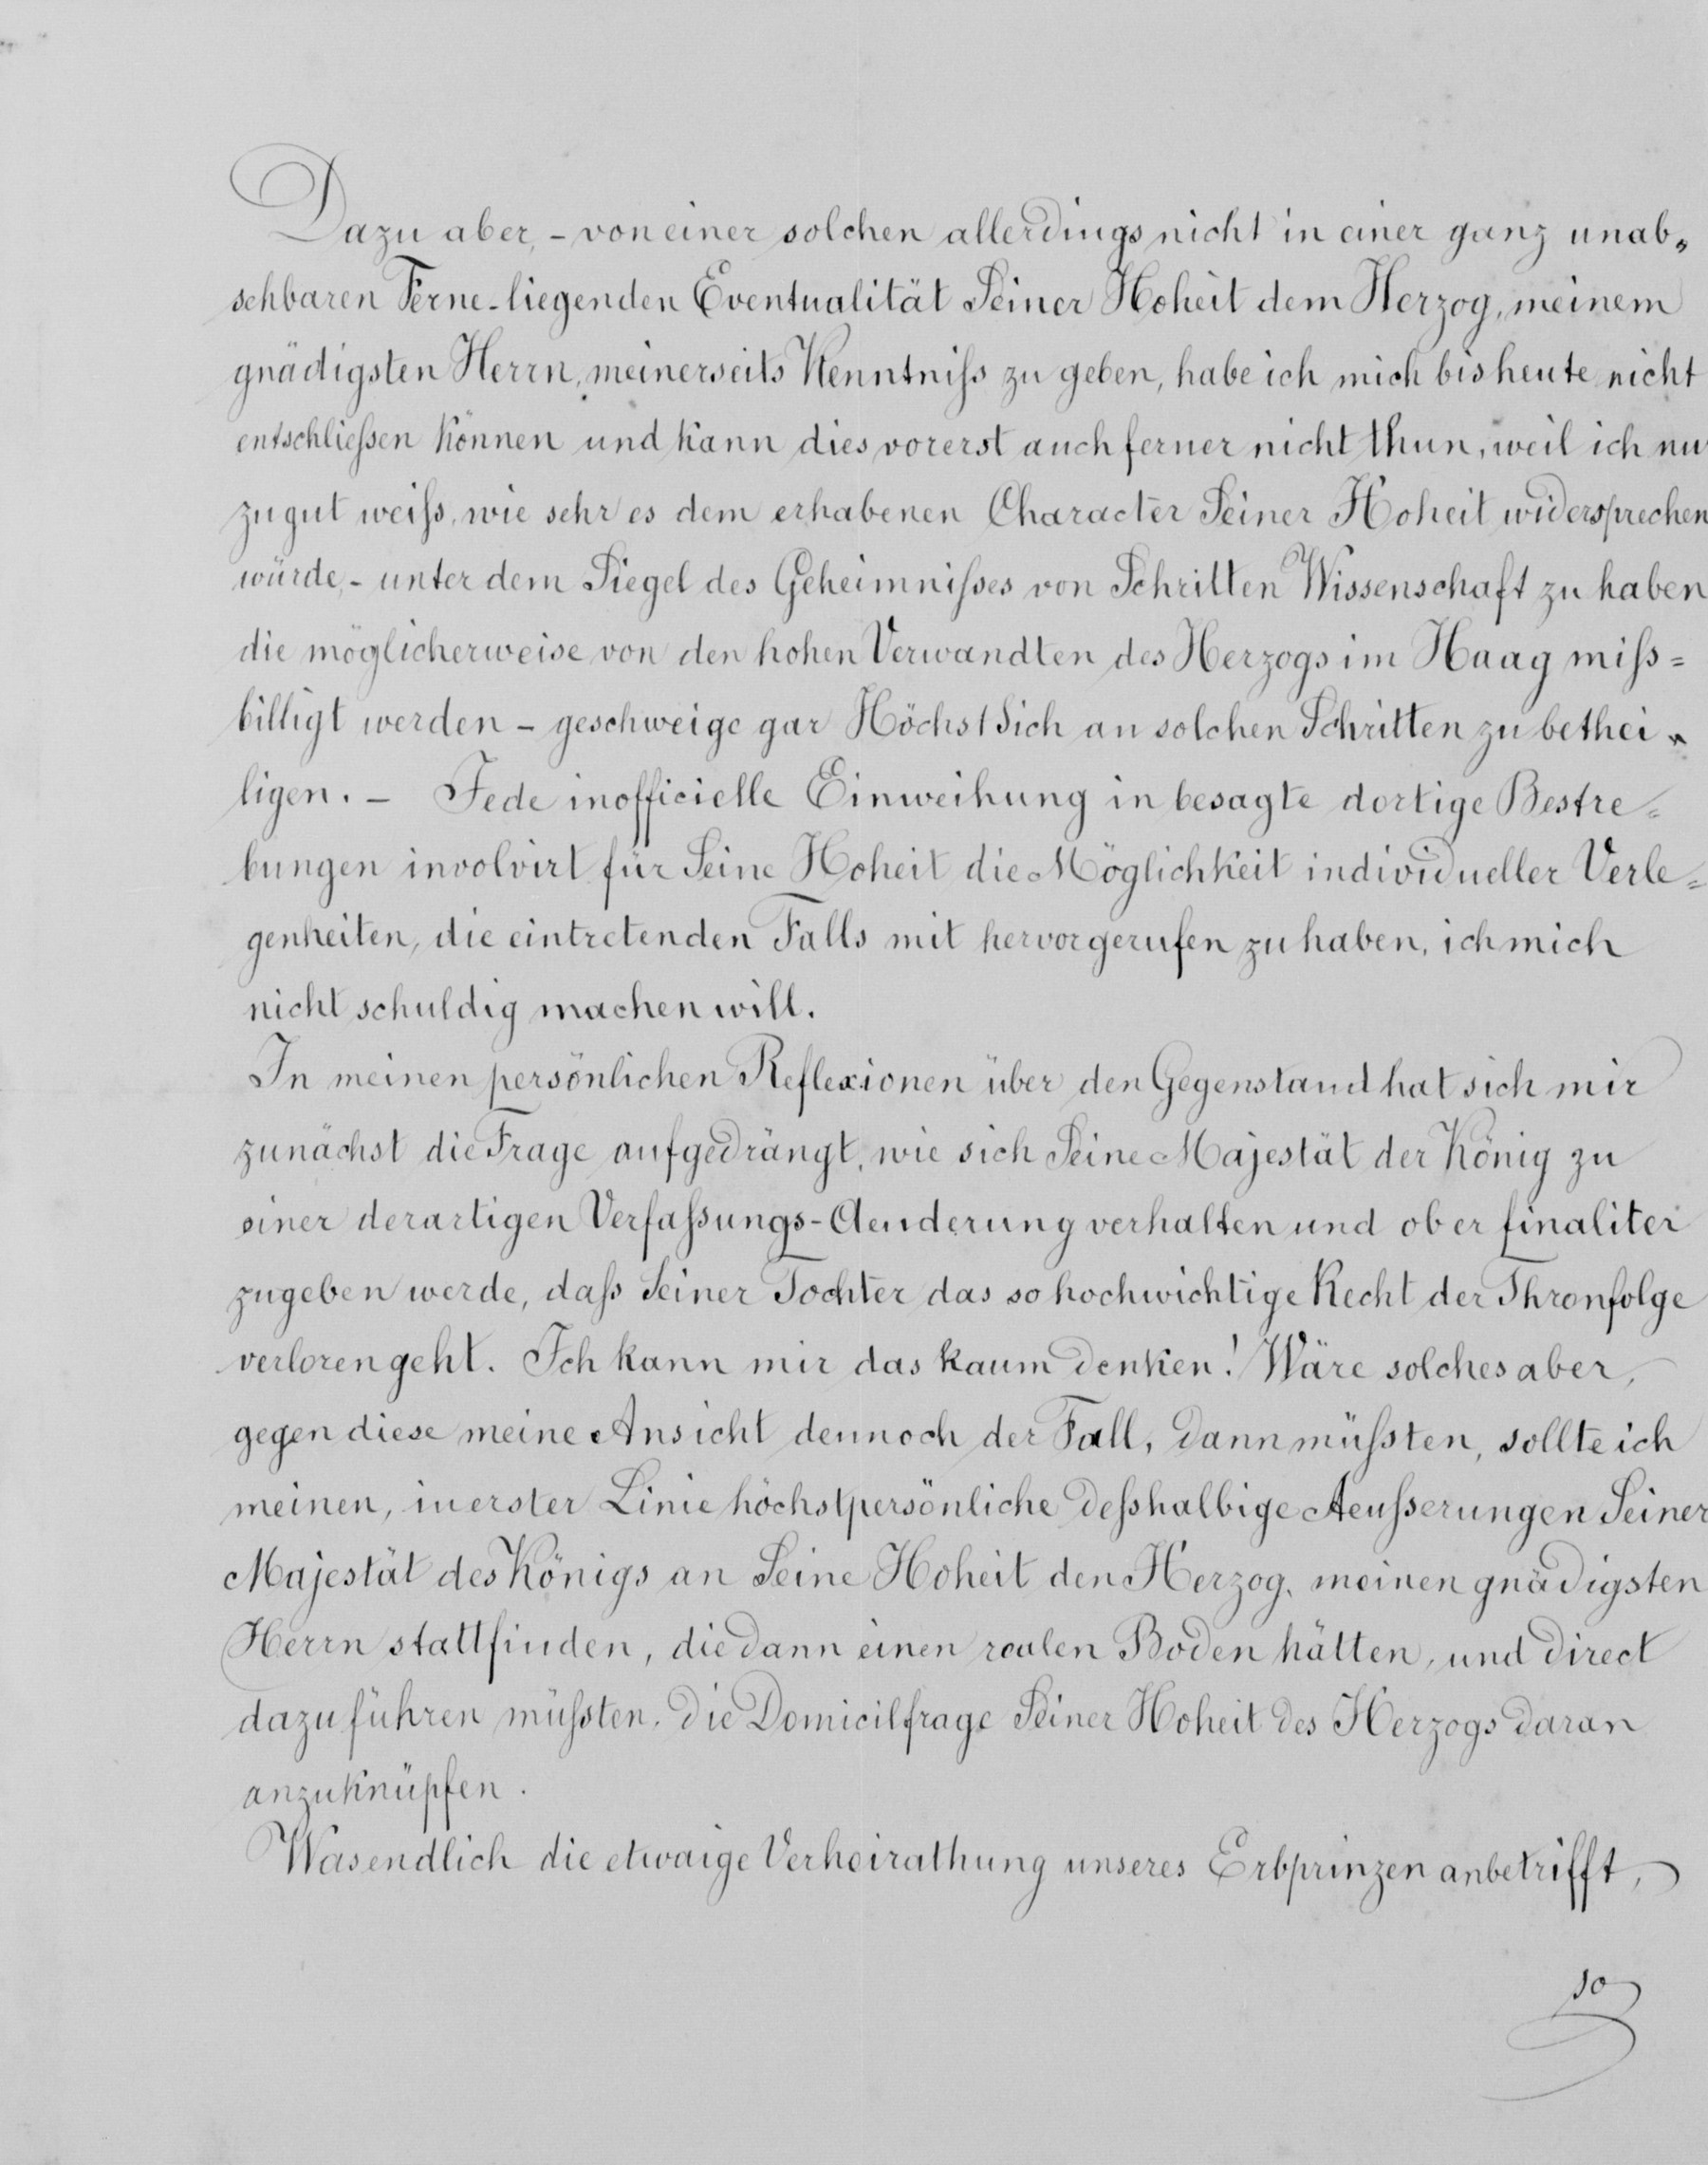 Dazu aber, - von einer solchen allerdings nicht in einer ganz unab„
sehbaren Ferne-liegenden Eventualität Seiner Hoheit dem Herzog, meinem
gnädigsten Herrn, meinerseits Kenntniſs zu geben, habe ich mich bis heute nicht
entschlieſsen können und kann dies vorerst auch ferner nicht thun, weil ich nur
zu gut weiſs, wie sehr es dem erhabenen Character Seiner Hoheit widersprechen
würde, - unter dem Siegel des Geheimniſses von Schritten Wissenschaft zu haben
die möglicherweise von den hohen Verwandten des Herzogs im Haag miſs=
billigt werden - geschweige gar Höchst Sich an solchen Schritten zu bethei„
ligen. - Jede inofficielle Einweihung in besagte dortige Bestre=
bungen involvirt für Seine Hoheit die Möglichkeit individueller Verle=
genheiten, die eintretenden Falls mit hervorgerufen zu haben, ich mich
nicht schuldig machen will.
In meinen persönlichen Reflexionen über den Gegenstand hat sich mir
zunächst die Frage aufgedrängt, wie sich Seine Majestät der König zu
einer derartigen Verfaſsungs-Aenderung verhalten und ob er finaliter
zugeben werde, daſs Seiner Tochter das so hochwichtige Recht der Thronfolge
verloren geht. Ich kann mir das kaum denken! Wäre solches aber,
gegen diese meine Ansicht dennoch der Fall, dann müſsten, sollte ich
meinen, in erster Linie höchstpersönliche deſshalbige Aeuſserungen Seiner
Majestät des Königs an Seine Hoheit den Herzog, meinen gnädigsten
Herrn stattfinden, die dann einen realen Boden hätten, und direct
dazu führen müſsten, die Domicilfrage Seiner Hoheit des Herzogs daran
anzuknüpfen.
Was endlich die etwaige Verheirathung unseres Erbprinzen anbetrifft,
so